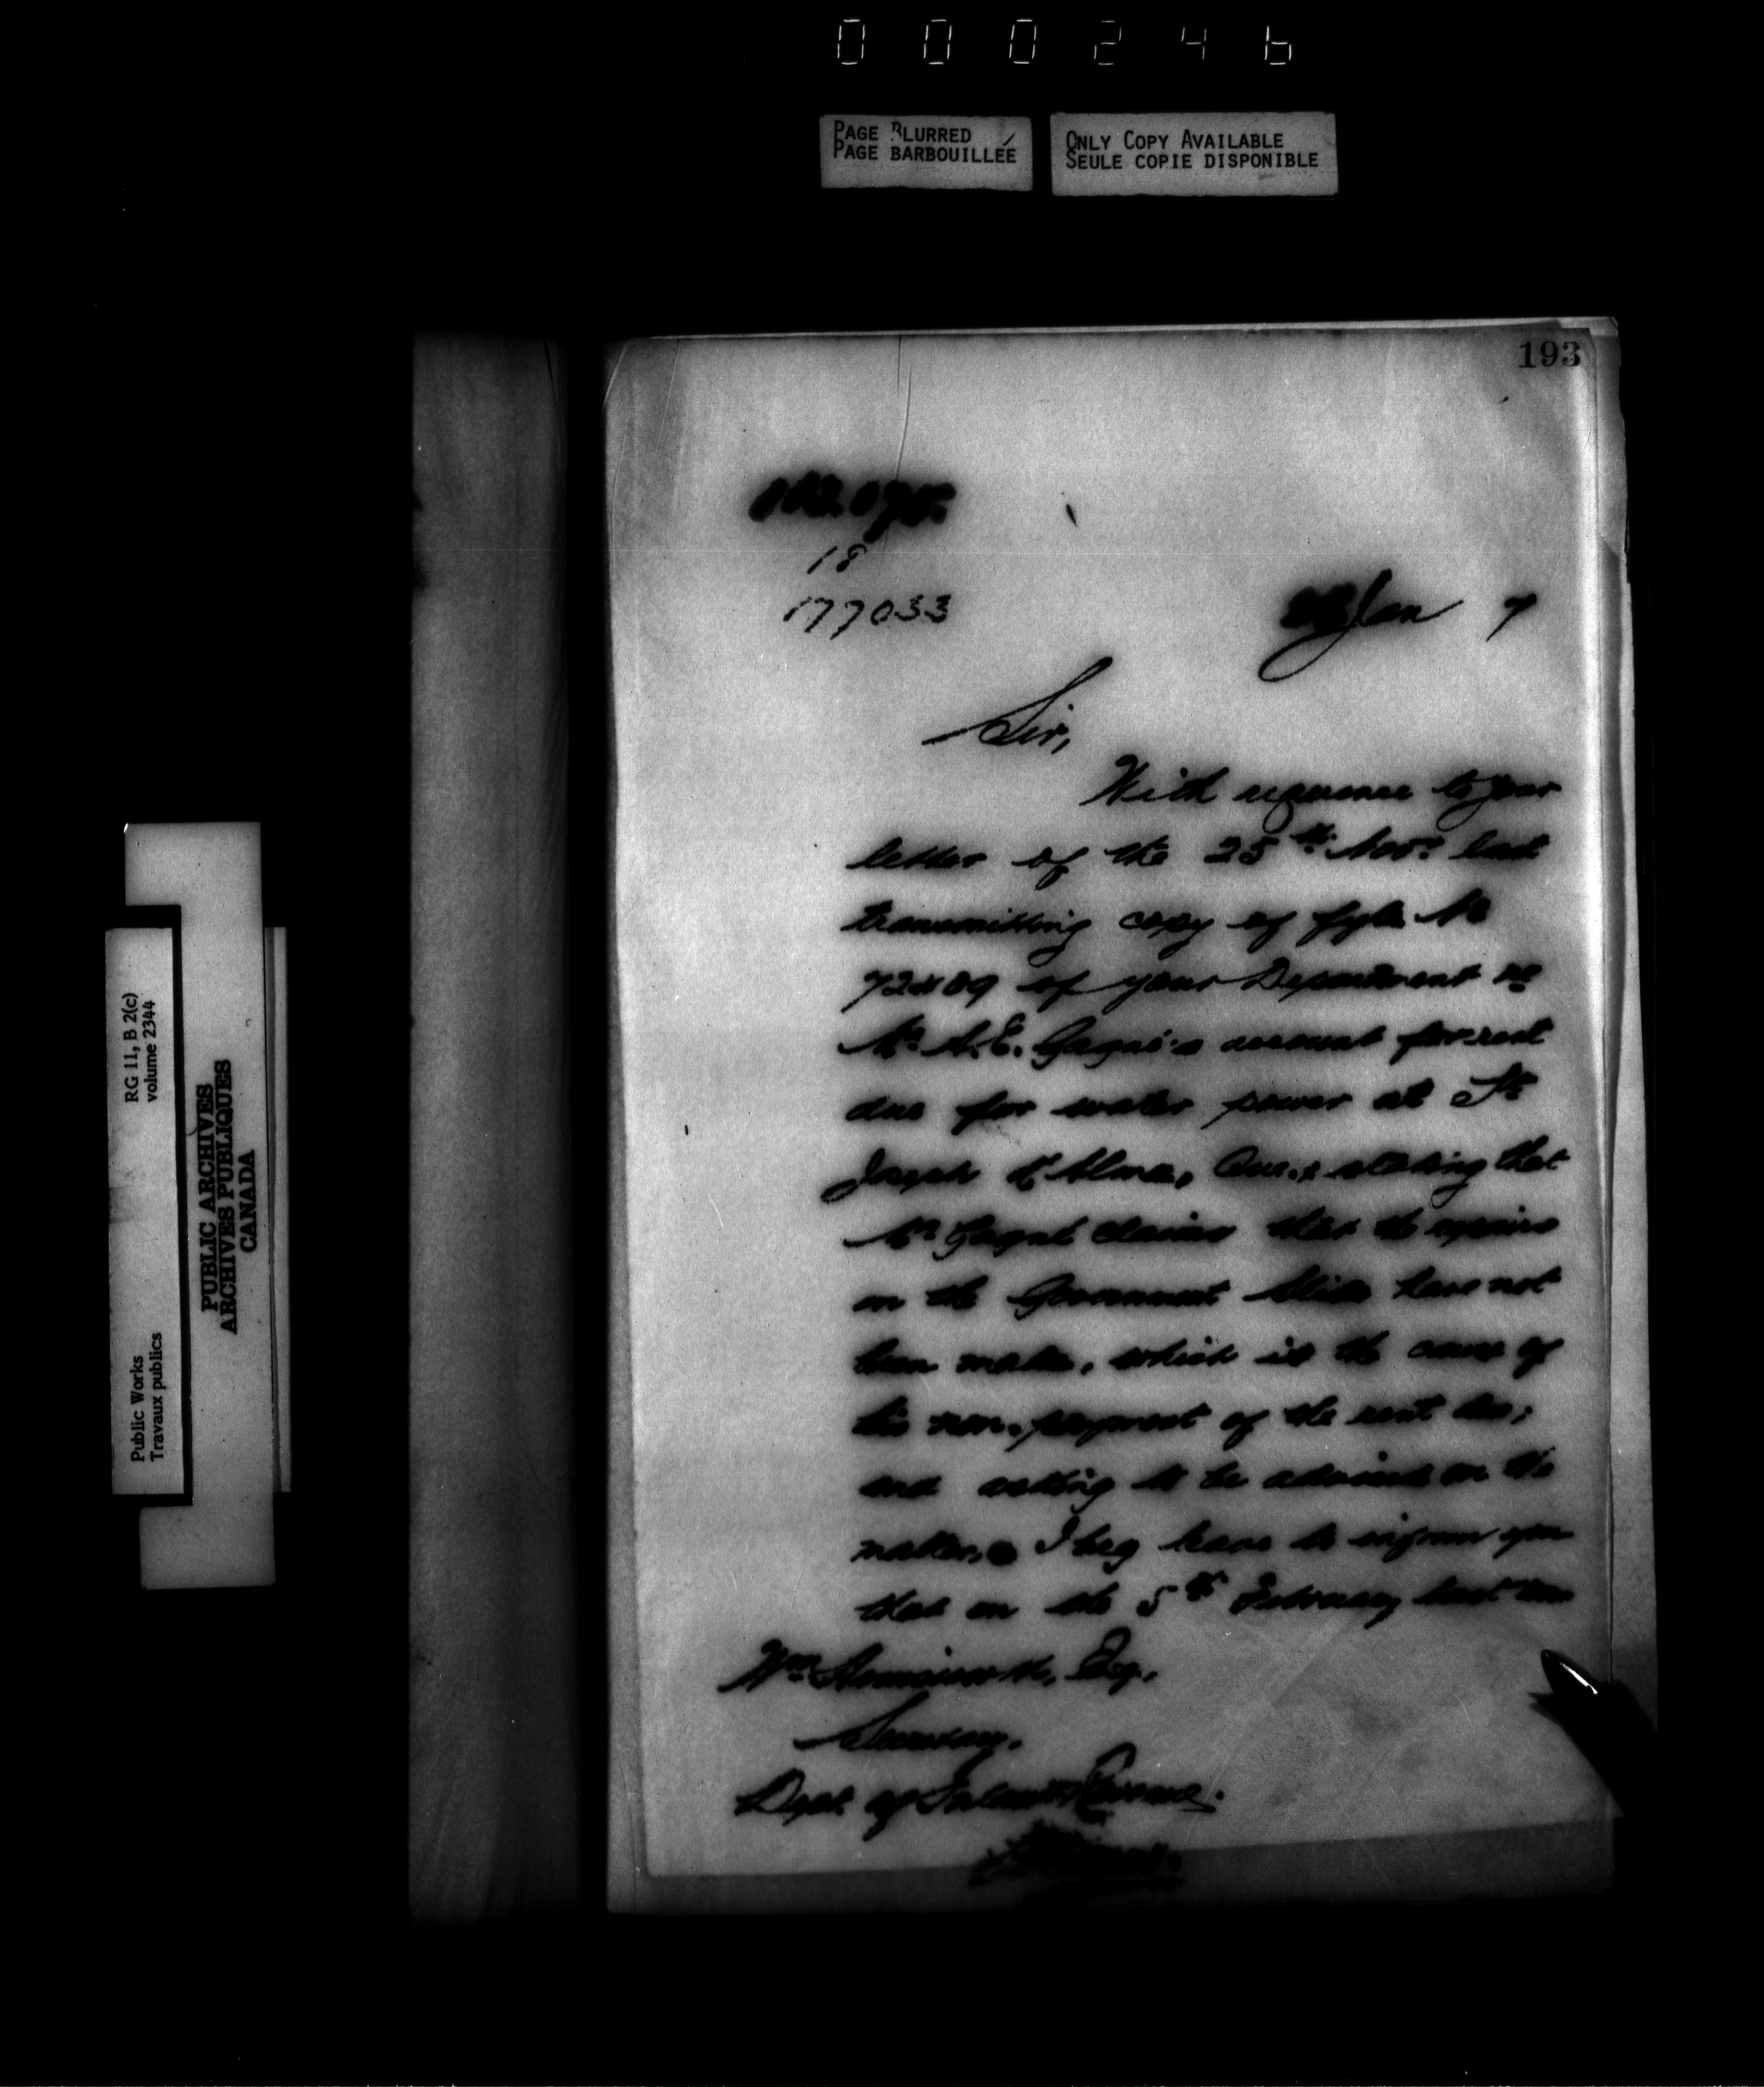 000246
PAGE BLURRED
PAGE BARBOUILLÉE
ONLY COPY AVAILABLE
SEULE COPIE DISPONIBLE
193
18
177033
Jan 7
Sir,
With reference to your
letter of the 25th Novr. last
transmitting copy of fyle No
of your Department re
Mr. A. E. Gagné's account for rent
due for water power at St
Joseph d'Alma, Que., stating that
Mr Gagné claims that the repairs
on the Government Slide have not
been made, which is the cause of
his non-payment of the rent due;
and asking to be advised on the
matter, I beg leave to inform you
that on the 5th February last
Wm Himsworth, Esq.,
Secretary,
Dept. of Inland Revenue.
RG 11, B 2(c)
volume 2344
Public Works
Travaux publics
PUBLIC ARCHIVES
ARCHIVES PUBLIQUES
CANADA